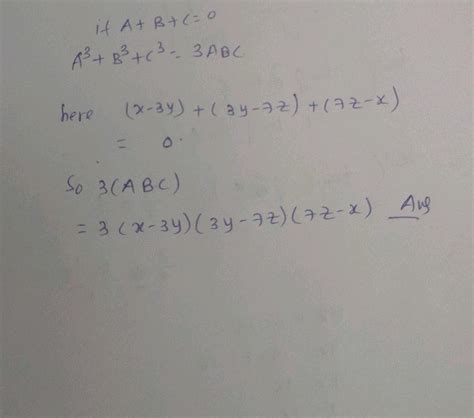 if A+B+C=0
A³+B³+C³= 3ABC
here (x-3y)+(3y-7z)+(7z-x)
= 0.
So 3(ABC)
= 3(x-3y)(3y-7z)(7z-x) Ans